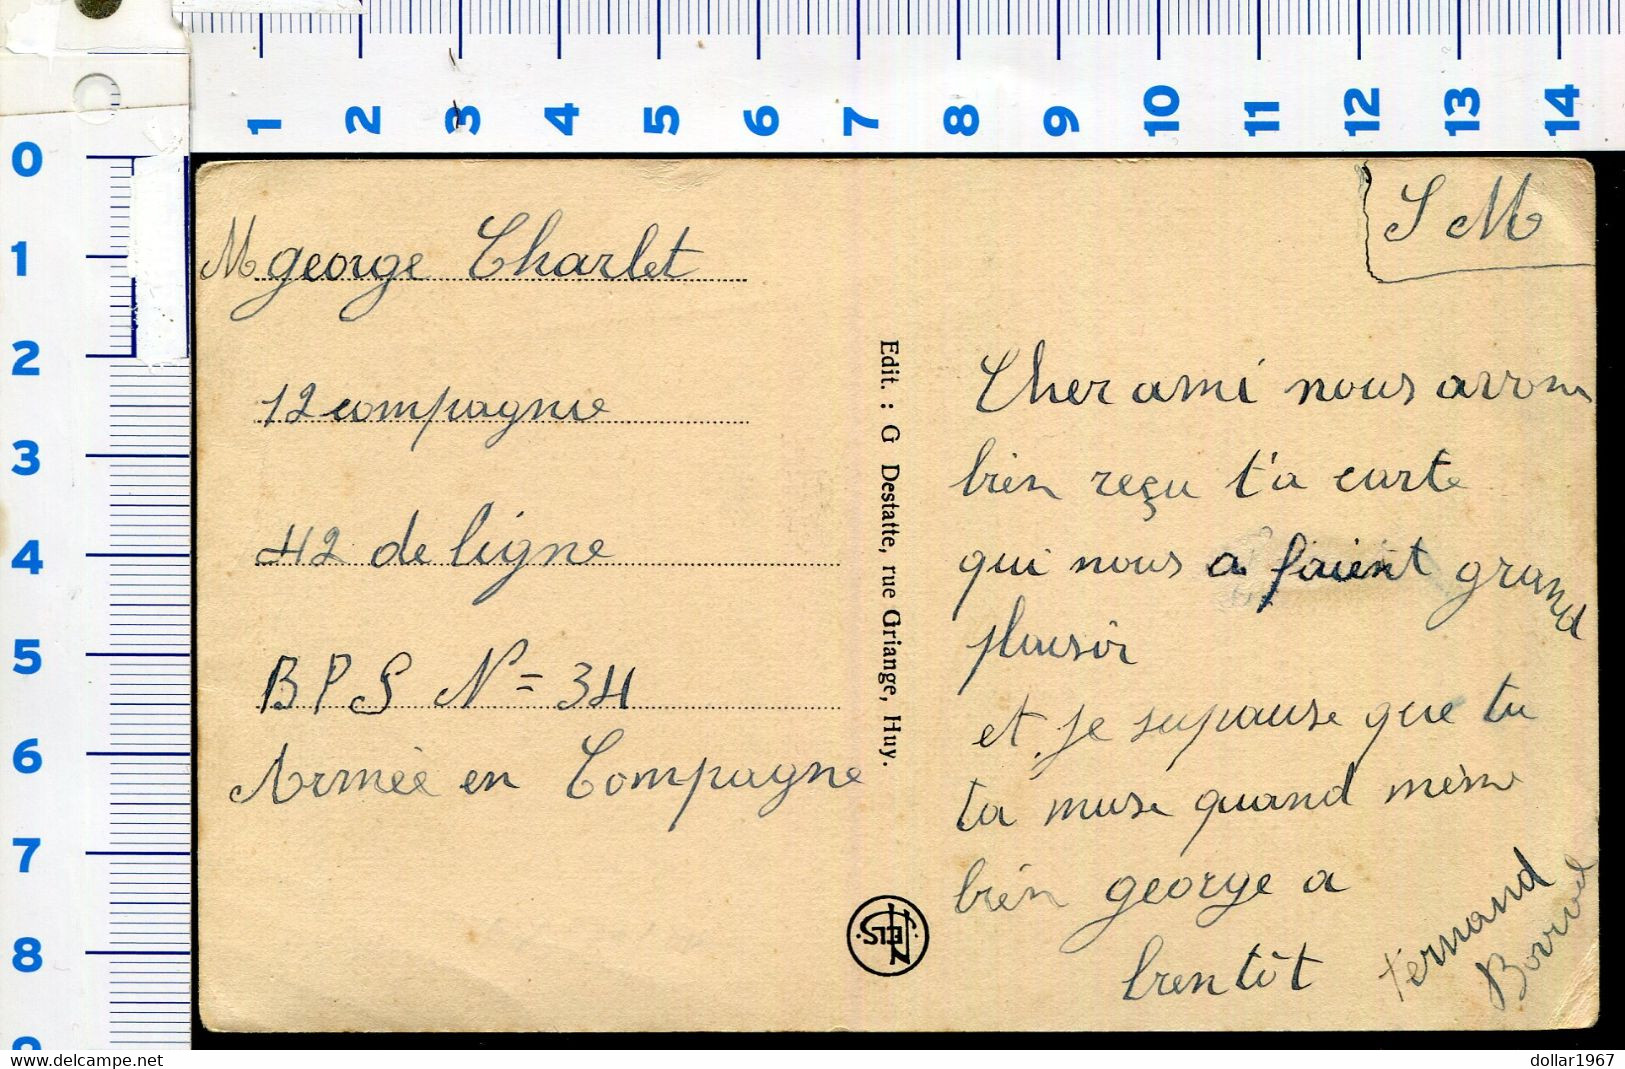 1 2 3 4 5 6 7 8 9 10 11 12 13 14
0
1
2
3
4
5
6
7
8
M george Charlet
12 compagnie
42 de ligne
B P S N = 34
Armée en Compagne
Edit. : G Destatte, rue Griange, Huy.
NELS
S M
Cher ami nous avons
bien reçu t'a carte
qui nous a faient grand
plaisir
et je supause que tu
ta muse quand mème
bien george a
bientôt
Fernand
dollar1967
delcampe.net